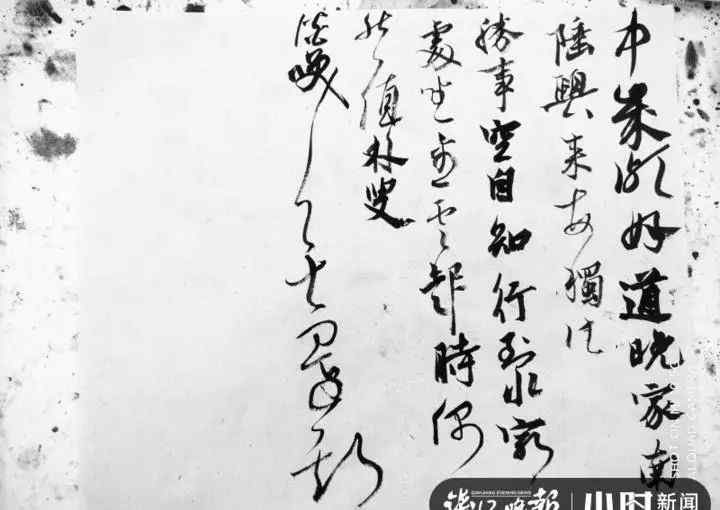 中歲頗好道晚家南
陲興來每獨往
勝事空自知行到水窮
處坐看雲起時偶
然值林叟
談笑
SHOT ON
AI QUAD CAMERA
钱江晚报
小时新闻